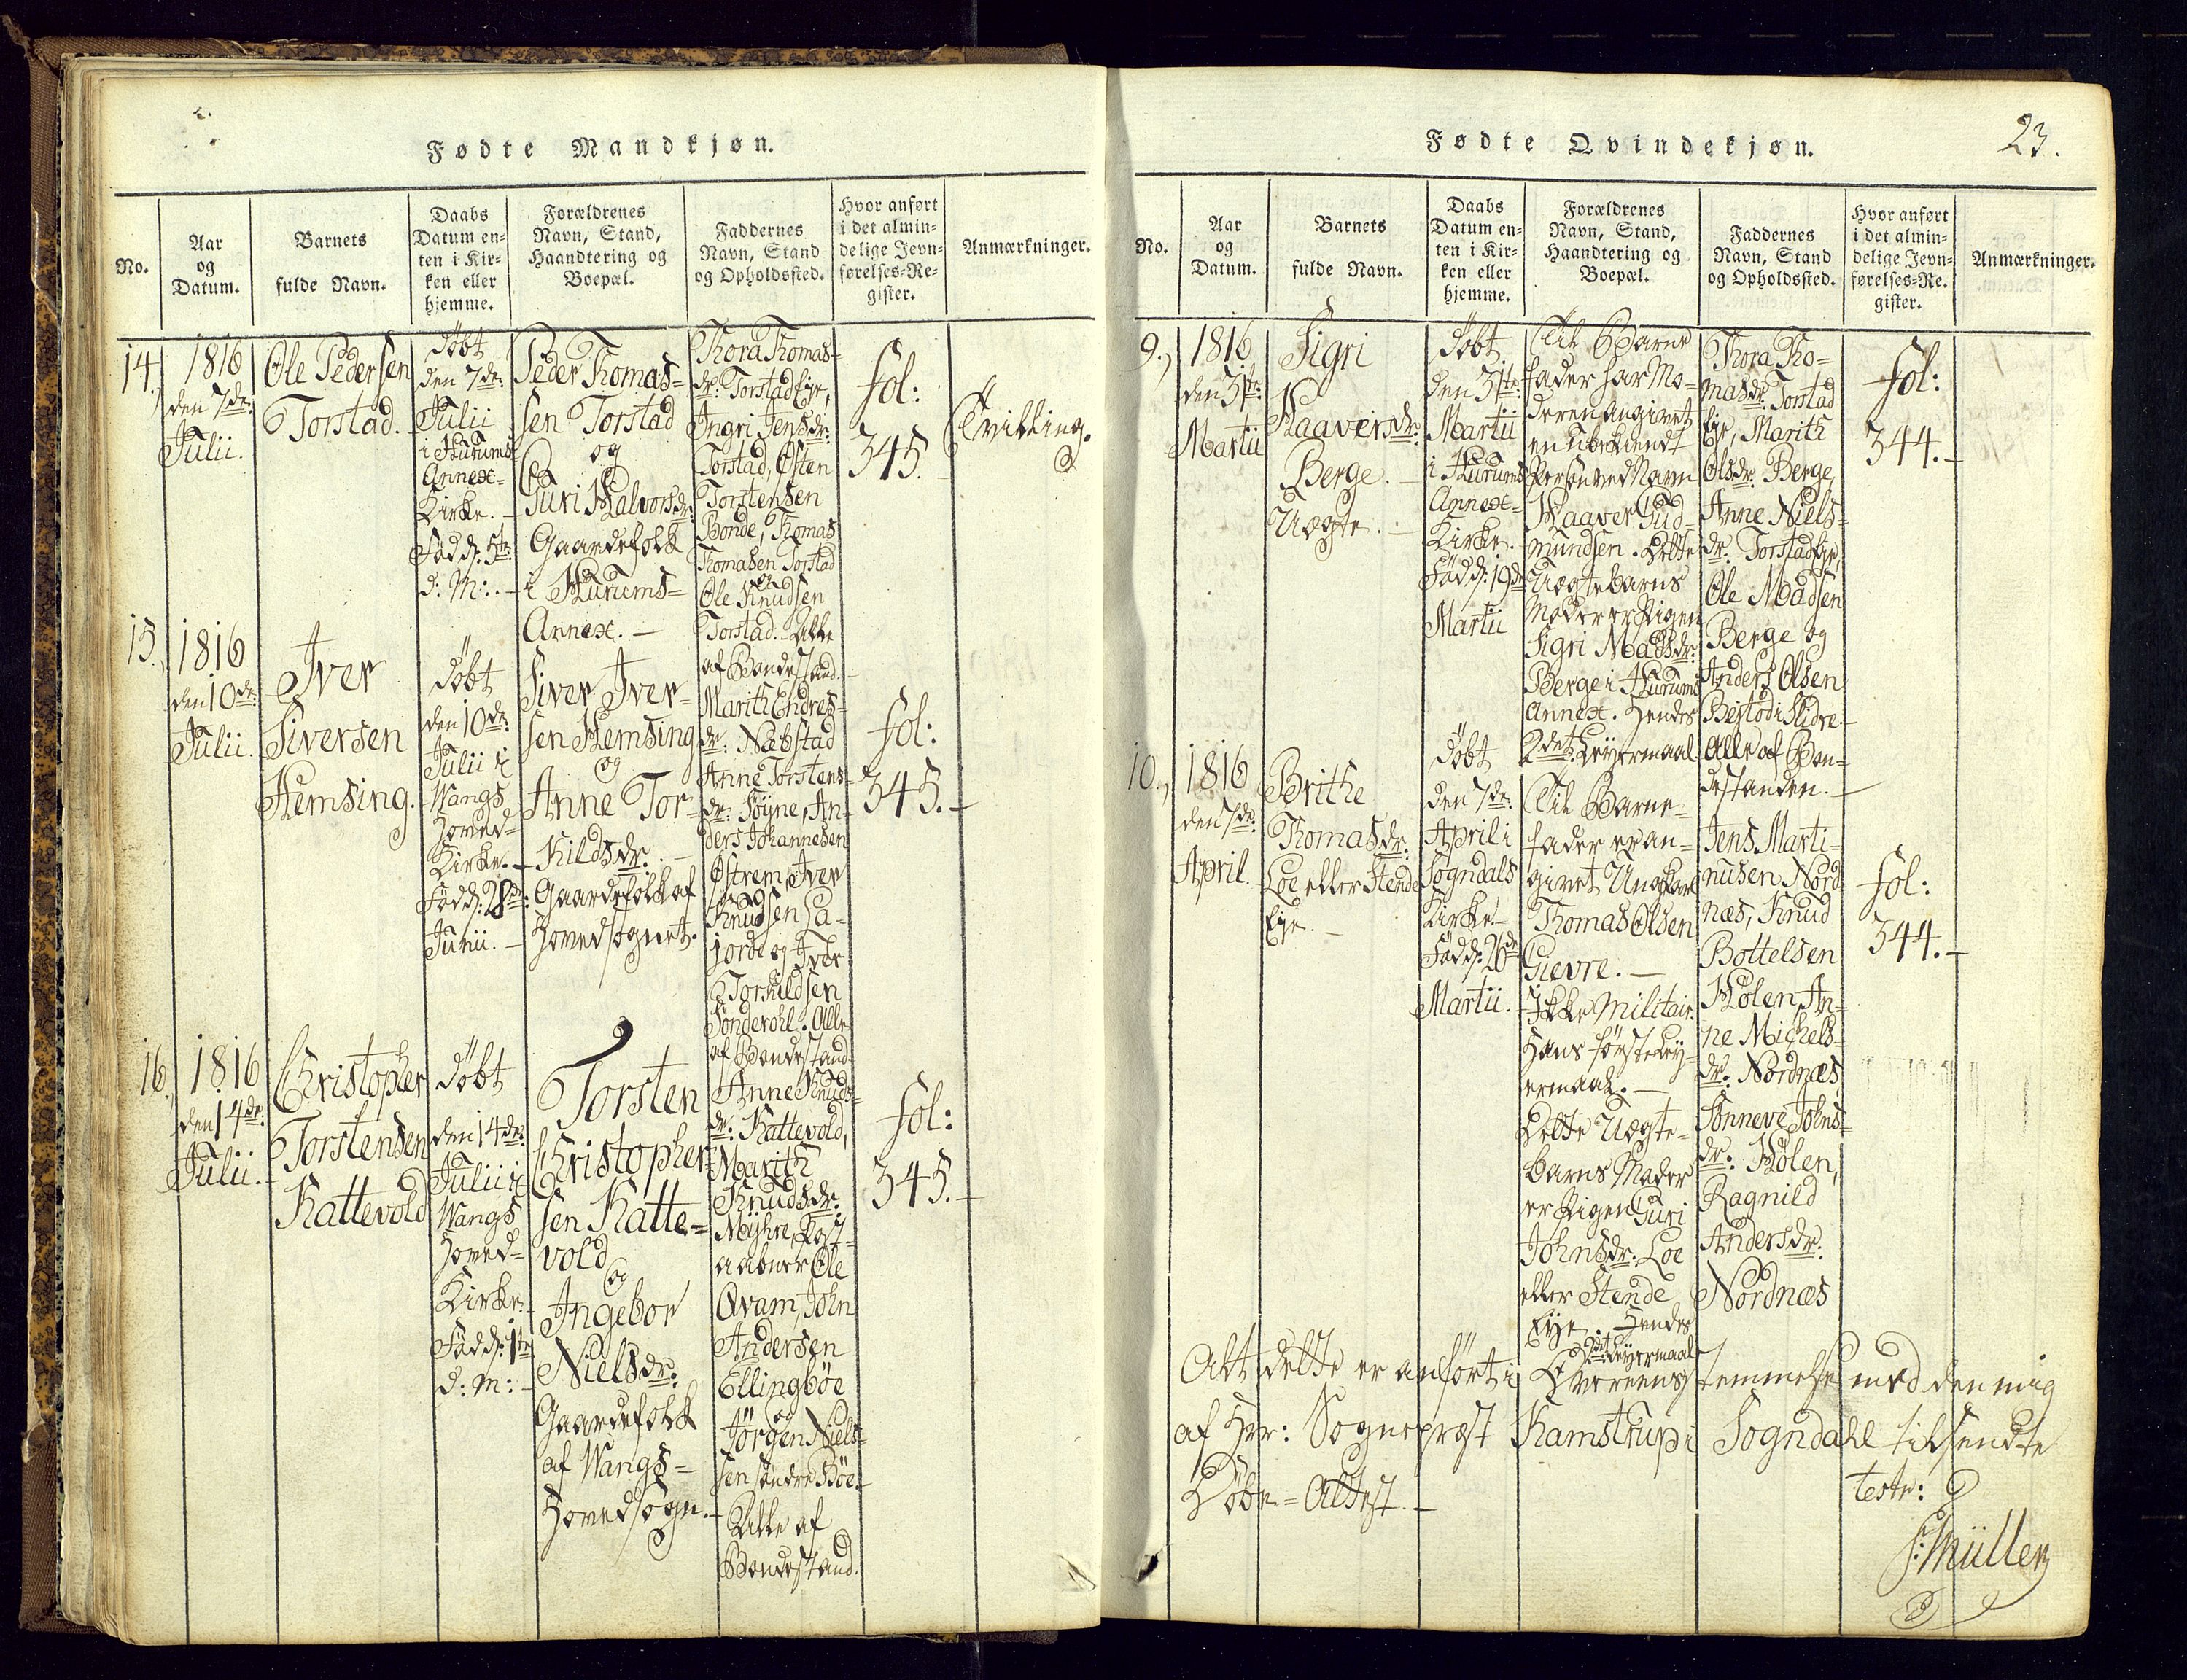 Fødte Mandkjøn.
No.
Aar
og
Datum.
Barnets
fulde Navn.
Daabs
Datum en-
ten i Kir-
ken eller
hjemme.
Forældrenes
Navn, Stand,
Haandtering og
Boepæl.
Faddernes
Navn, Stand
og Opholdssted.
Hvor anført
i det almin-
delige Jevn-
førelses-Re-
gister.
Anmærkninger.
14.,
1816
den 7de:
Julii.
Ole Pedersen
Torstad.
Döbt
den 7de:
Julii
i Hurums
Annex-
Kirke.
Född: 5te
d: M:.
Peder Thomas-
sen Torstad
og
Guri Halvorsdr:
Gaardefolk
i Hurums-
Annex. -
Thora Thomas-
dr: Torstad Eje,
Ingri Jensdr:
Torstad, Østen
Torstensen
Bonde, Thomas
Thomasen Torstad
og
Ole Knudsen
Torstad. Alle
af Bondestand.
fol:
345.
Tvilling.
15.,
1816
den 10de:
Julii.
Iver
Siversen
Hemsing.
Döbt
den 10de:
Julii i
Wangs
Hoved-
Kirke. -
Född: 28de:
Junii. -
Siver Iver-
sen Hemsing
og
Anne Tor-
kildsdr. -
Gaardefolk af
Hovedsognet.
Marith Endres-
dr: Næbstad
Anne Torstens-
dr: Töyne, An-
ders Johannesen
Østrem, Iver
Knudsen La-
jorde og Iver
Torkildsen
Sönderohl. Alle
af Bondestand.
fol:
345. -
16.,
1816
den 14de:
Julii. -
Christopher
Torstensen
Kattevold
Döbt
den 14de:
Julii i
Wangs
Hoved-
Kirke. -
Född: 1te
d: m: -
Torsten
Christopher-
sen Katte-
vold
og
Ingebor
Nielsdr:
Gaardefolk
af Wangs-
Hovedsogn. -
Anne Knuds-
dr: Kattevold,
Marith
Knudsdr:
Myhre, Post-
aabner Ole
Qvam, John
Andersen
Ellingböe
og
Jörgen Niels-
sen söndre Böe. -
Alle af
Bondestand.
fol:
345. -
Fødte Qvindekjøn.
23.
No.
Aar
og
Datum.
Barnets
fulde Navn.
Daabs
Datum en-
ten i Kir-
ken eller
hjemme.
Forældrenes
Navn, Stand,
Haandtering og
Boepæl.
Faddernes
Navn, Stand
og Opholdssted.
Hvor anført
i det almin-
delige Jevn-
førelses-Re-
gister.
Anmærkninger.
9.,
1816
den 31te:
Martii
Sigri
Haaversdr:
Berge. -
Uægte. -
Döbt
den 31te:
Martii
i Hurums
Annex-
Kirke.
Född: 19de
Martii
Til Barne
fader har Mo-
deren angivet
en Ubekiendt
Person ved Navn
Haaver Gud-
mundsen. Dette
Uægte barns
Moder er Pigen
Sigri Madsdr:
Berge i Hurums
Annex. Hendes
2det Leyermaal.
Thora Tho-
masdr: Torstad
Eje, Marith
Olsdr: Berge,
Anne Niels-
dr: Torstad Eje,
Ole Madsen
Berge og
Anders Olsen
i Slidre. -
Alle af Bon-
destanden. -
fol:
344. -
10.,
1816
den 7de:
April.
Brithe
Thomasdr:
Loe eller Stende
Eje. -
Döbt
den 7de:
April i
Sogndals
Kirke. -
Född: 26de
Martii. -
Til Barne-
fader er an-
givet Ungkarl
Thomas Olsen
Gievre. -
Ikke Militair.
Hans förste Ley-
ermaal. -
Dette Uægte-
barns Moder
er Pigen Guri
Johnsdr: Loe
eller Stende
Eje. Hendes
2det Leyermaal
Jens Marti-
nusen Nord-
næs, Knud
Bottelsen
Hølen, An-
ne Michels-
dr: Nordnæs,
Sönneve Johns-
dr: Hølen,
Ragnild
Andersdr:
Nordnæs
fol:
344. -
Alt dette er anført i Overeensstemmelse med den mig
af Hrr: Sognepræst Kamstrup i Sogndahl tilsendte
Döbe-Attest. -
test:
F: Müller